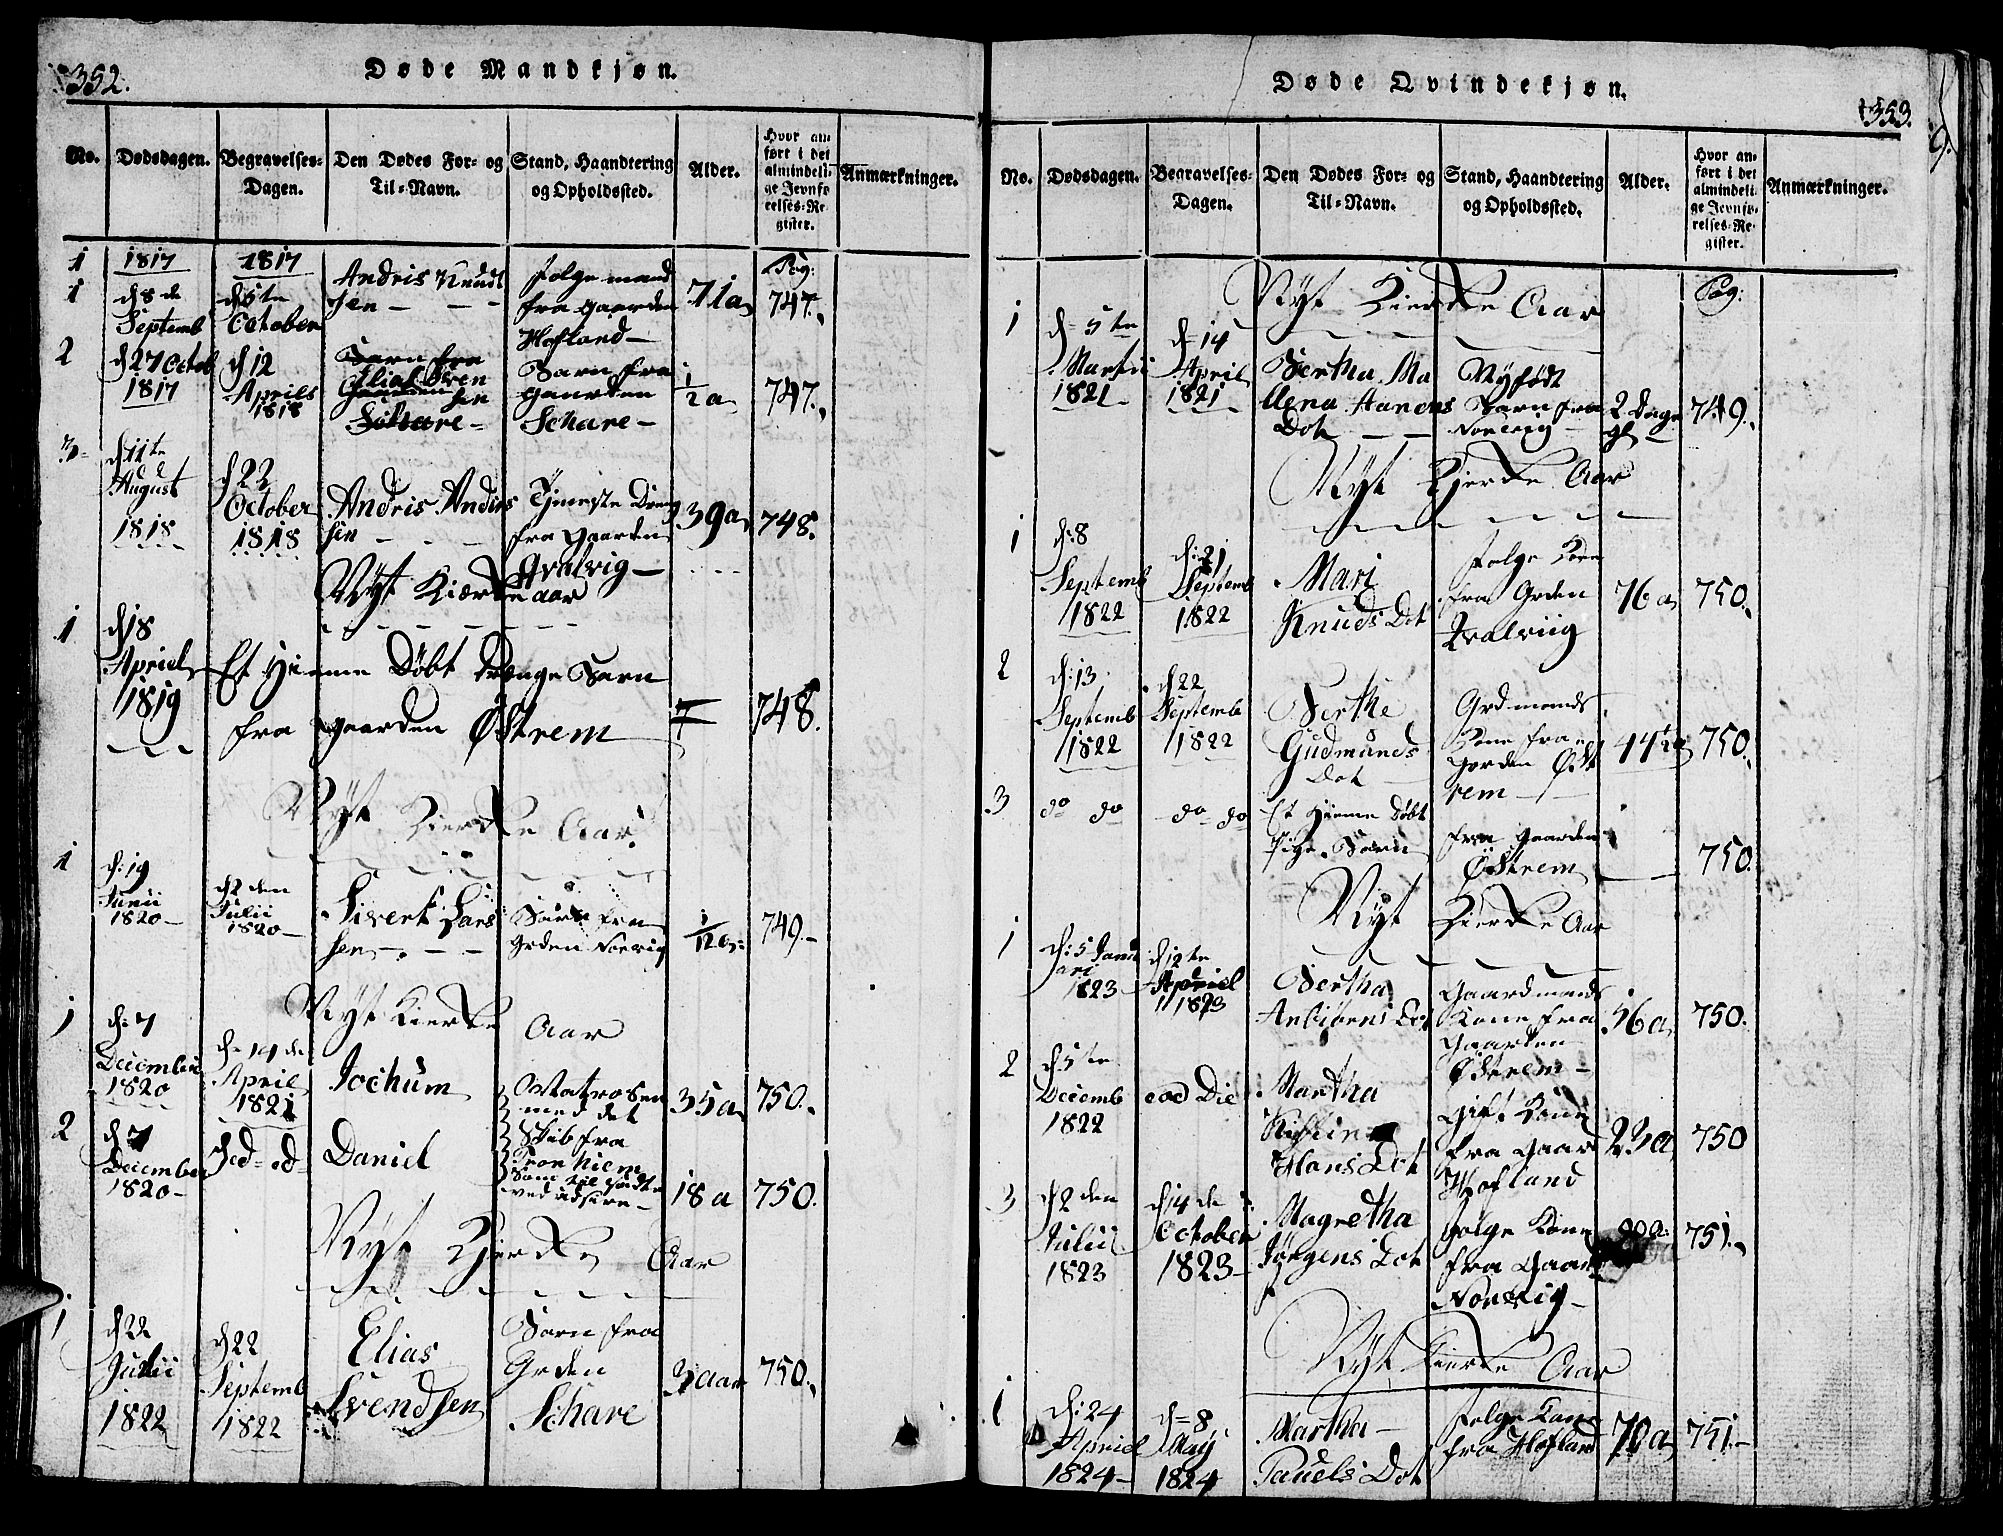 352.
Døde Mandkjøn.
No.
Dødsdagen.
Begravelses-
Dagen.
Den Dødes For- og
Til-Navn.
Stand, Haandtering
og Opholdssted.
Alder.
Hvor an-
ført i det
almindeli-
ge Jevnfø-
relses-Re-
gister.
Anmærkninger.
1 1817 1817 Pag:
1 d 8 de
Septemb
d 5te
October
Andris Knudt
sen — — —
Folgemand
fra Gaarden
Hofland —
71 a
747.
2 d 27 Octob
1817
d 12
Aprils
1818
Elias Sven
sen
Barn fra
Gaarden
Schare —
1/2 a
747.
3 d 11te
August
1818
d 22
October
1818
Andris Andris
sen — — —
Tjeneste Dreng
fra Gaarden
Qvalvig —
39 a
748.
Nyt Kierke aar
1 d 18
Apriel
1819
Et Hieme Døbt Drænge Barn
fra gaarden Østrem
748.
Nyt Kierke Aar
1 d: 19
Junii
1820 —
d 2 den
Julii
1820 —
Sivert Lars
sen — . — —
Barn fra
Grden Norvig
1/12 a:
749. —
Nyt Kierke Aar
1 d: 7
Decembris
1820
d = 14 de
April
1821
Jochum
Matrosen
med det
Skib fra
Tronhiem
Som til Satte
ved Udsire —
35 a
750.
2 d 7
December
1820 —
Daniel
18 a
750.
Nyt Kierke Aar
1 d 22
Julii
1822
d 22
Septemb
1822
Elias
Svendsen
Barn fra
Grden
Schare
3 aar
750.
353.
Døde Qvindekjøn.
No.
Dødsdagen.
Begravelses-
Dagen.
Den Dødes For- og
Til-Navn.
Stand, Haandtering
og Opholdssted.
Alder.
Hvor an-
ført i det
almindeli-
ge Jevnfø-
relses-Re-
gister.
Anmærkninger.
Nyt Kierke Aar
Pag:
1 d = 5te
Martii
1821
d = 14
April
1821
Bertha Ma
lena Hanens
Dot — —
Nyfødt
Barn fra
Norvig
2 Dage
gl —
749.
Nyt Kierke Aar
1 d: 8
Septemb
1822
d: 21
Septemb
1822
Mari
Knuds Dot
Folge Kone
fra Grden
Qvalviig
76 a
750.
2 d: 13
Septemb
1822
d 22
Septemb
1822
Berthe
Gudmunds
Dot
Grdmands
Kone fra
Gorden Øst
rem —
44 1/2 a
750.
3 do do do do
Et Hieme Døbt
Pige Barn
fra Gaarden
Østrem
750.
Nyt Kierke Aar
1 d: 5 Janu
ari
1823
d 12te
Apriel
1823
Bertha
Anbiørns Dot
Gaardmands
Kone fra
Gaarden
Østrem —
56 a
750.
2 d 5te
Decemb
1822
eod Die
Martha
Hans Dot
Gift Kone
fra Gaar
Hofland
750
3 d 2 den
Julii
1823
d 14 de
October
1823 —
Magretha
Jørgens Dot
Folge Kone
fra Gaard
Norvig —
751.
Nyt Kierke Aar
1 d: 24
Apriel
1824 —
d = 8
Maÿ
1824
Martha —
Pauels Dot
Folge Kone
fra Hofland
70 a
751. —